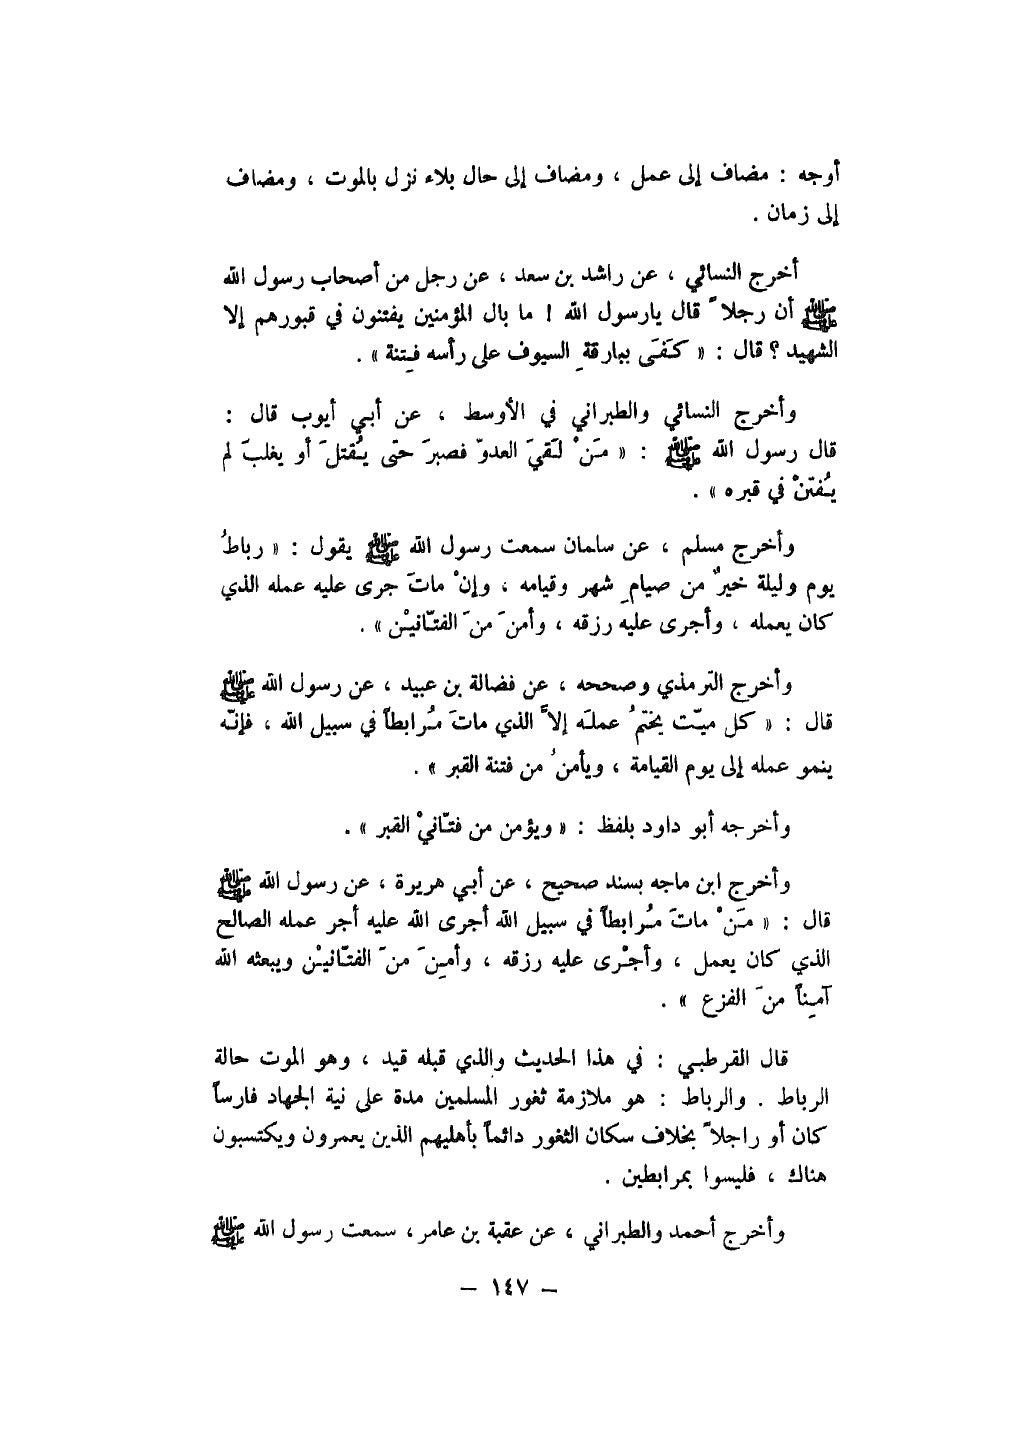 أوجه : مضاف إلى عمل ، ومضاف إلى حال بلاء نزل بالموت ، ومضاف
إلى زمان .
أخرج النسائي ، عن راشد بن سعد ، عن رجل من أصحاب رسول الله
ﷺ أن رجلاً قال يارسول الله ! ما بال المؤمنين يفتنون في قبورهم إلا
الشهيد ؟ قال : « كَفَى ببارقةِ السيوف على رأسه فِتنة » .
وأخرج النسائي والطبراني في الأوسط ، عن أبي أيوب قال :
قال رسول الله ﷺ : « مَنْ لَقيَ العدوّ فصبرَ حتى يُقتلَ أو يغلبَ لم
يُفتنْ في قبره » .
وأخرج مسلم ، عن سلمان سمعت رسول الله ﷺ يقول : « رباطُ
يوم وليلة خيرٌ من صيامِ شهر وقيامه ، وإنْ ماتَ جرى عليه عمله الذي
كان يعمله ، وأجرى عليه رزقه ، وأمنَ منَ الفتّانيْن » .
وأخرج الترمذي وصححه ، عن فضالة بن عبيد ، عن رسول الله ﷺ
قال : « كل ميّت يختمُ عملَه إلاَّ الذي ماتَ مُرابطاً في سبيل الله ، فإنّه
ينمو عمله إلى يوم القيامة ، ويأمنُ من فتنة القبر » .
وأخرجه أبو داود بلفظ : « ويؤمن من فتّانيْ القبر » .
وأخرج ابن ماجه بسند صحيح ، عن أبي هريرة ، عن رسول الله ﷺ
قال : « مَنْ ماتَ مُرابطاً في سبيل الله أجرى الله عليه أجر عمله الصالح
الذي كان يعمل ، وأجْرى عليه رزقه ، وأمِنَ منَ الفتّانيْن ويبعثه الله
آمِناً منَ الفزع » .
قال القرطبي : في هذا الحديث والذي قبله قيد ، وهو الموت حالة
الرباط . والرباط : هو ملازمة ثغور المسلمين مدة على نية الجهاد فارساً
كان أو راجلاً بخلاف سكان الثغور دائماً بأهليهم الذين يعمرون ويكتسبون
هناك ، فليسوا بمرابطين .
وأخرج أحمد والطبراني ، عن عقبة بن عامر ، سمعت رسول الله ﷺ
– ١٤٧ –